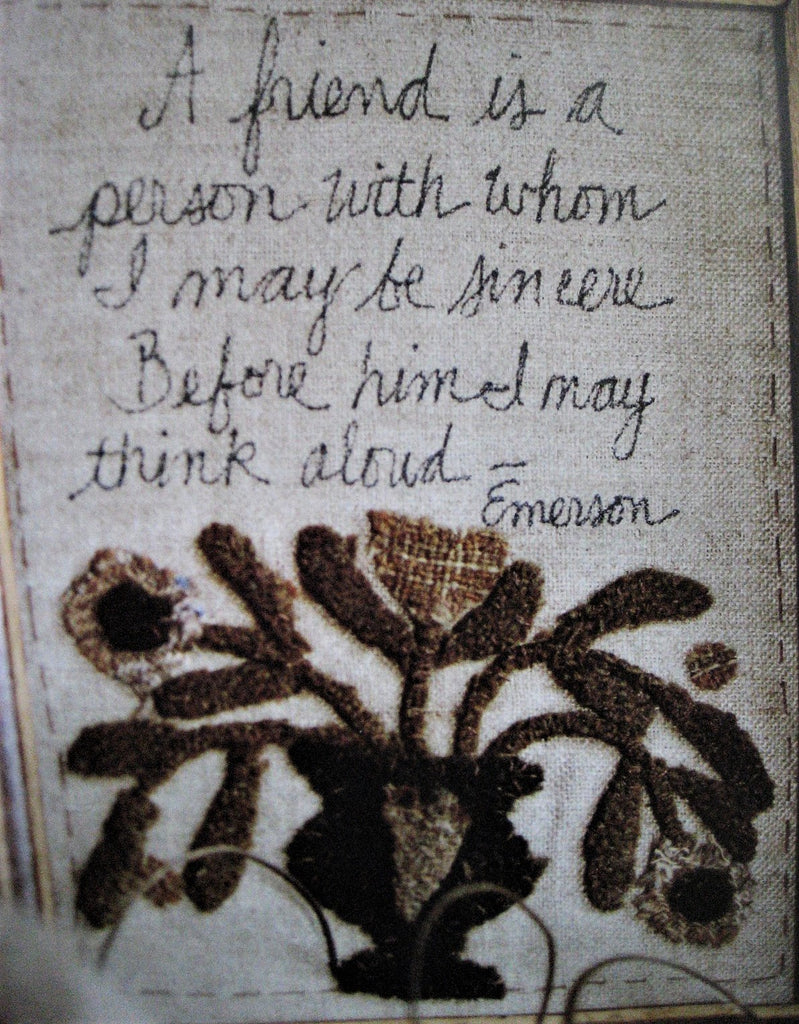 A friend is a
person with whom
I may be sincere
Before him I may
think aloud –
Emerson